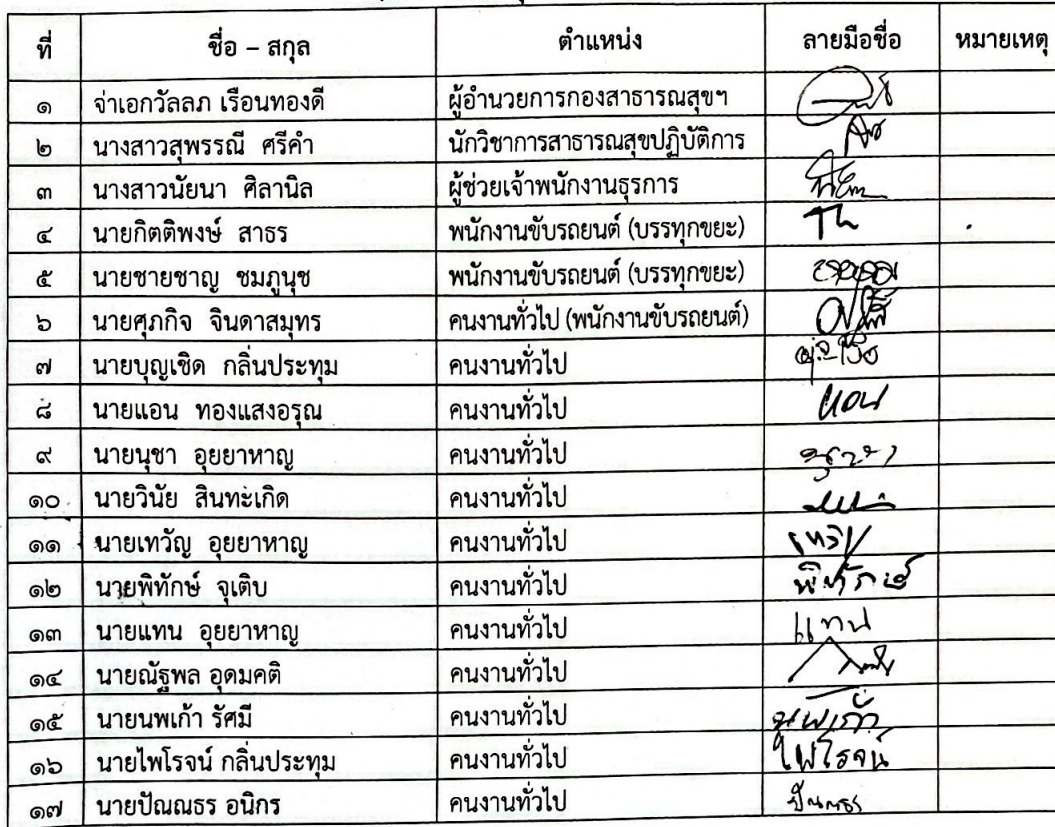 ที่ ชื่อ – สกุล ตำแหน่ง ลายมือชื่อ หมายเหตุ
๑ จ่าเอกวัลลภ เรือนทองดี ผู้อำนวยการกองสาธารณสุขฯ
๒ นางสาวสุพรรณี ศรีคำ นักวิชาการสาธารณสุขปฏิบัติการ
๓ นางสาวนัยนา ศิลานิล ผู้ช่วยเจ้าพนักงานธุรการ
๔ นายกิตติพงษ์ สาธร พนักงานขับรถยนต์ (บรรทุกขยะ)
๕ นายชายชาญ ชมภูนุช พนักงานขับรถยนต์ (บรรทุกขยะ)
๖ นายศุภกิจ จินดาสมุทร คนงานทั่วไป (พนักงานขับรถยนต์)
๗ นายบุญเชิด กลิ่นประทุม คนงานทั่วไป
๘ นายแอน ทองแสงอรุณ คนงานทั่วไป แอน
๙ นายนุชา อุยยาหาญ คนงานทั่วไป
๑๐ นายวินัย สินทะเกิด คนงานทั่วไป
๑๑ นายเทวัญ อุยยาหาญ คนงานทั่วไป
๑๒ นายพิทักษ์ จุเติบ คนงานทั่วไป พิทักษ์
๑๓ นายแทน อุยยาหาญ คนงานทั่วไป แทน
๑๔ นายณัฐพล อุดมคติ คนงานทั่วไป
๑๕ นายนพเก้า รัศมี คนงานทั่วไป นพเก้า
๑๖ นายไพโรจน์ กลิ่นประทุม คนงานทั่วไป ไพโรจน์
๑๗ นายปัณณธร อนิกร คนงานทั่วไป